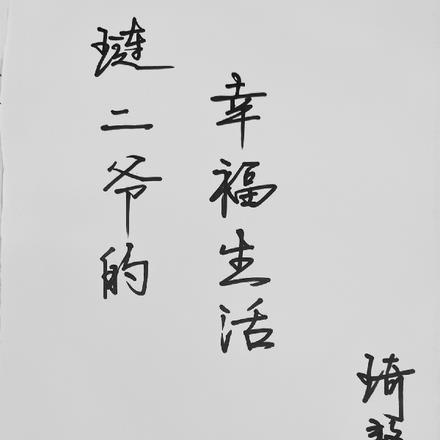 琏二爷的
幸福生活
琦